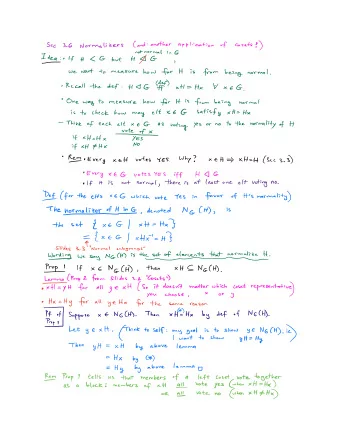 Sec 3.6 Normalizers (and another application of cosets!)
Idea: • If H < G but H ⋪ G,
not normal in G
we want to measure how far H is from being normal.
• Recall the def: H ◁ G iff (def) xH = Hx ∀ x ∈ G.
• One way to measure how far H is from being normal
is to check how many elt x ∈ G satisfy xH = Hx
- Think of each elt x ∈ G as voting yes or no to the normality of H
vote of x
if xH = Hx YES
if xH ≠ Hx NO
• Rem • Every x ∈ H votes YES Why? x ∈ H ⇒ xH = H
• Every x ∈ G votes YES iff H ◁ G
• If H is not normal, there is at least one elt voting no.
Def (for the elts x ∈ G which vote YES in favor of H's normality)
The normalizer of H in G, denoted N_G(H), is
the set { x ∈ G | xH = Hx }
= { x ∈ G | xHx⁻¹ = H }
Wording we say N_G(H) is the set of elements that normalize H.
Prop 1 If x ∈ N_G(H), then xH ⊆ N_G(H).
• xH = yH for all y ∈ xH (So it doesn't matter which coset representative)
you choose, x or y
• Hx = Hy for all y ∈ Hx for the same reason
Pf of Prop 1 Suppose x ∈ N_G(H). Then xH = Hx by def of N_G(H).
Let y ∈ xH. (Think to self: my goal is to show y ∈ N_G(H), ie
I want to show yH = Hy
Then yH = xH by above lemma
= Hx by (*)
= Hy by above lemma □
Rem Prop 1 tells us that members of a left coset vote together
as a block: members of xH all vote yes (when xH = Hx)
or all vote no (when xH ≠ Hx)